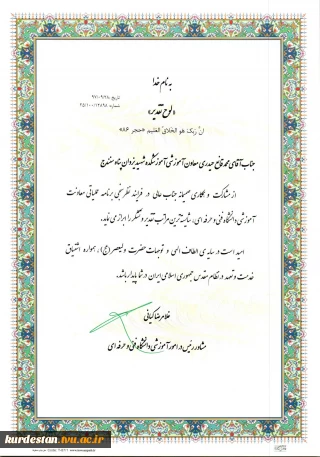 به نام خدا
تاریخ: ۹۷/۰۹/۲۸
شماره: ۲۵/۱۰۰/۱۲۸۹۸
«لوح تقدیر»
انّ ربک هو الخلاق العلیم «حجر ۸۶»
جناب آقای محمد قانع حیدری معاون آموزشی آموزشکده شهید یزدان پناه سنندج
از مشارکت و همکاری صمیمانه جناب عالی در فرایند نظرسنجی برنامه عملیاتی معاونت
آموزشی دانشگاه فنی و حرفه ای، صمیمانه ترین مراتب تقدیر و تشکر را ابراز می نماید.
امید است در سایه ی الطاف الهی و توجهات حضرت ولیعصر (عج)، همواره اشتیاق
خدمت و تعهد در نظام مقدس جمهوری اسلامی ایران در شما پایدار باشد.
غلامرضا کیانی
مشاور رئیس در امور آموزشی دانشگاه فنی و حرفه ای
kurdestan.tvu.ac.ir